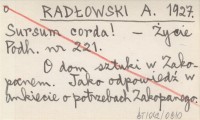 RADŁOWSKI A. 1927.
Sursum corda! – Życie
Podh. nr 221.
O dom sztuki w Zako-
panem. Jako odpowiedź w
ankiecie o potrzebach Zakopanego.